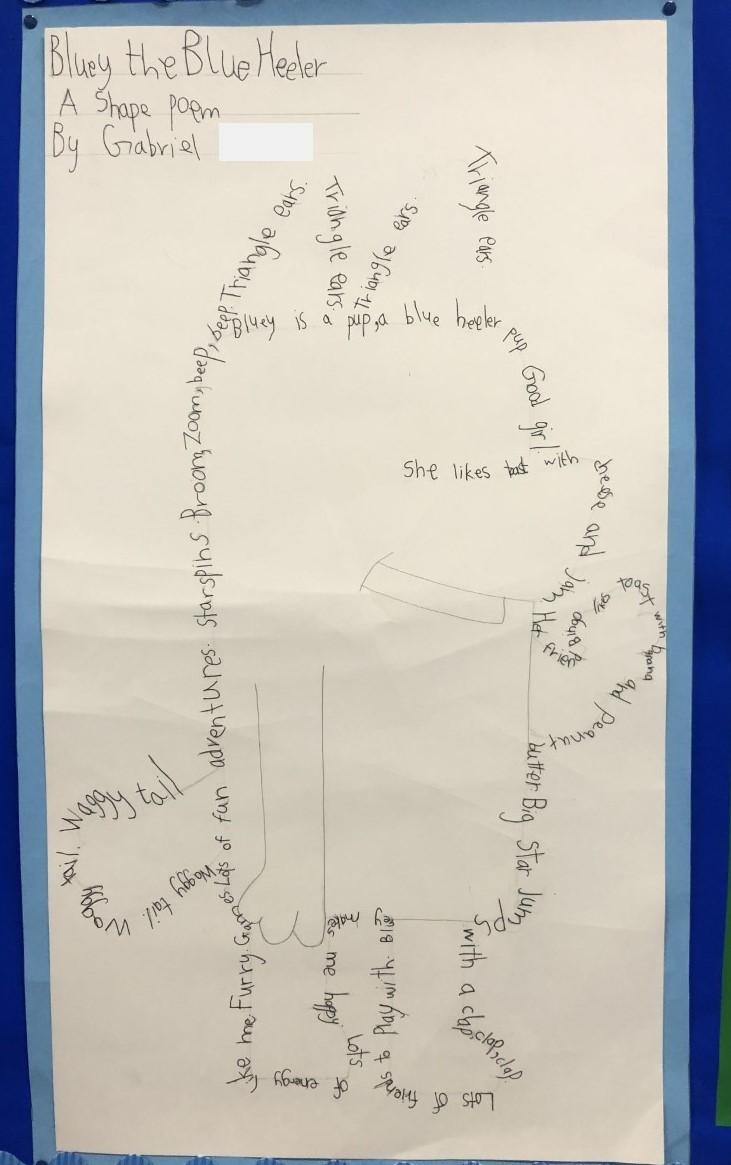 Bluey the Blue Heeler
A Shape poem
By Gabriel
Triangle ears.
Triangle ears.
Triangle ears.
Triangle ears.
Bluey is a pup, a blue heeler pup Good girl.
She likes toast with cheese and Jam Her friend
say
toast with banana and peanut butter. Big Star Jumps with a clap, clap, clap.
Lots of friends to Play with. Bluey
makes me happy.
Lots of energy like me. Furry. Games. Lots of fun adventures. Starspins. Broom, Zoom, beep, beep.
Waggy tail. Waggy tail. Waggy tail.